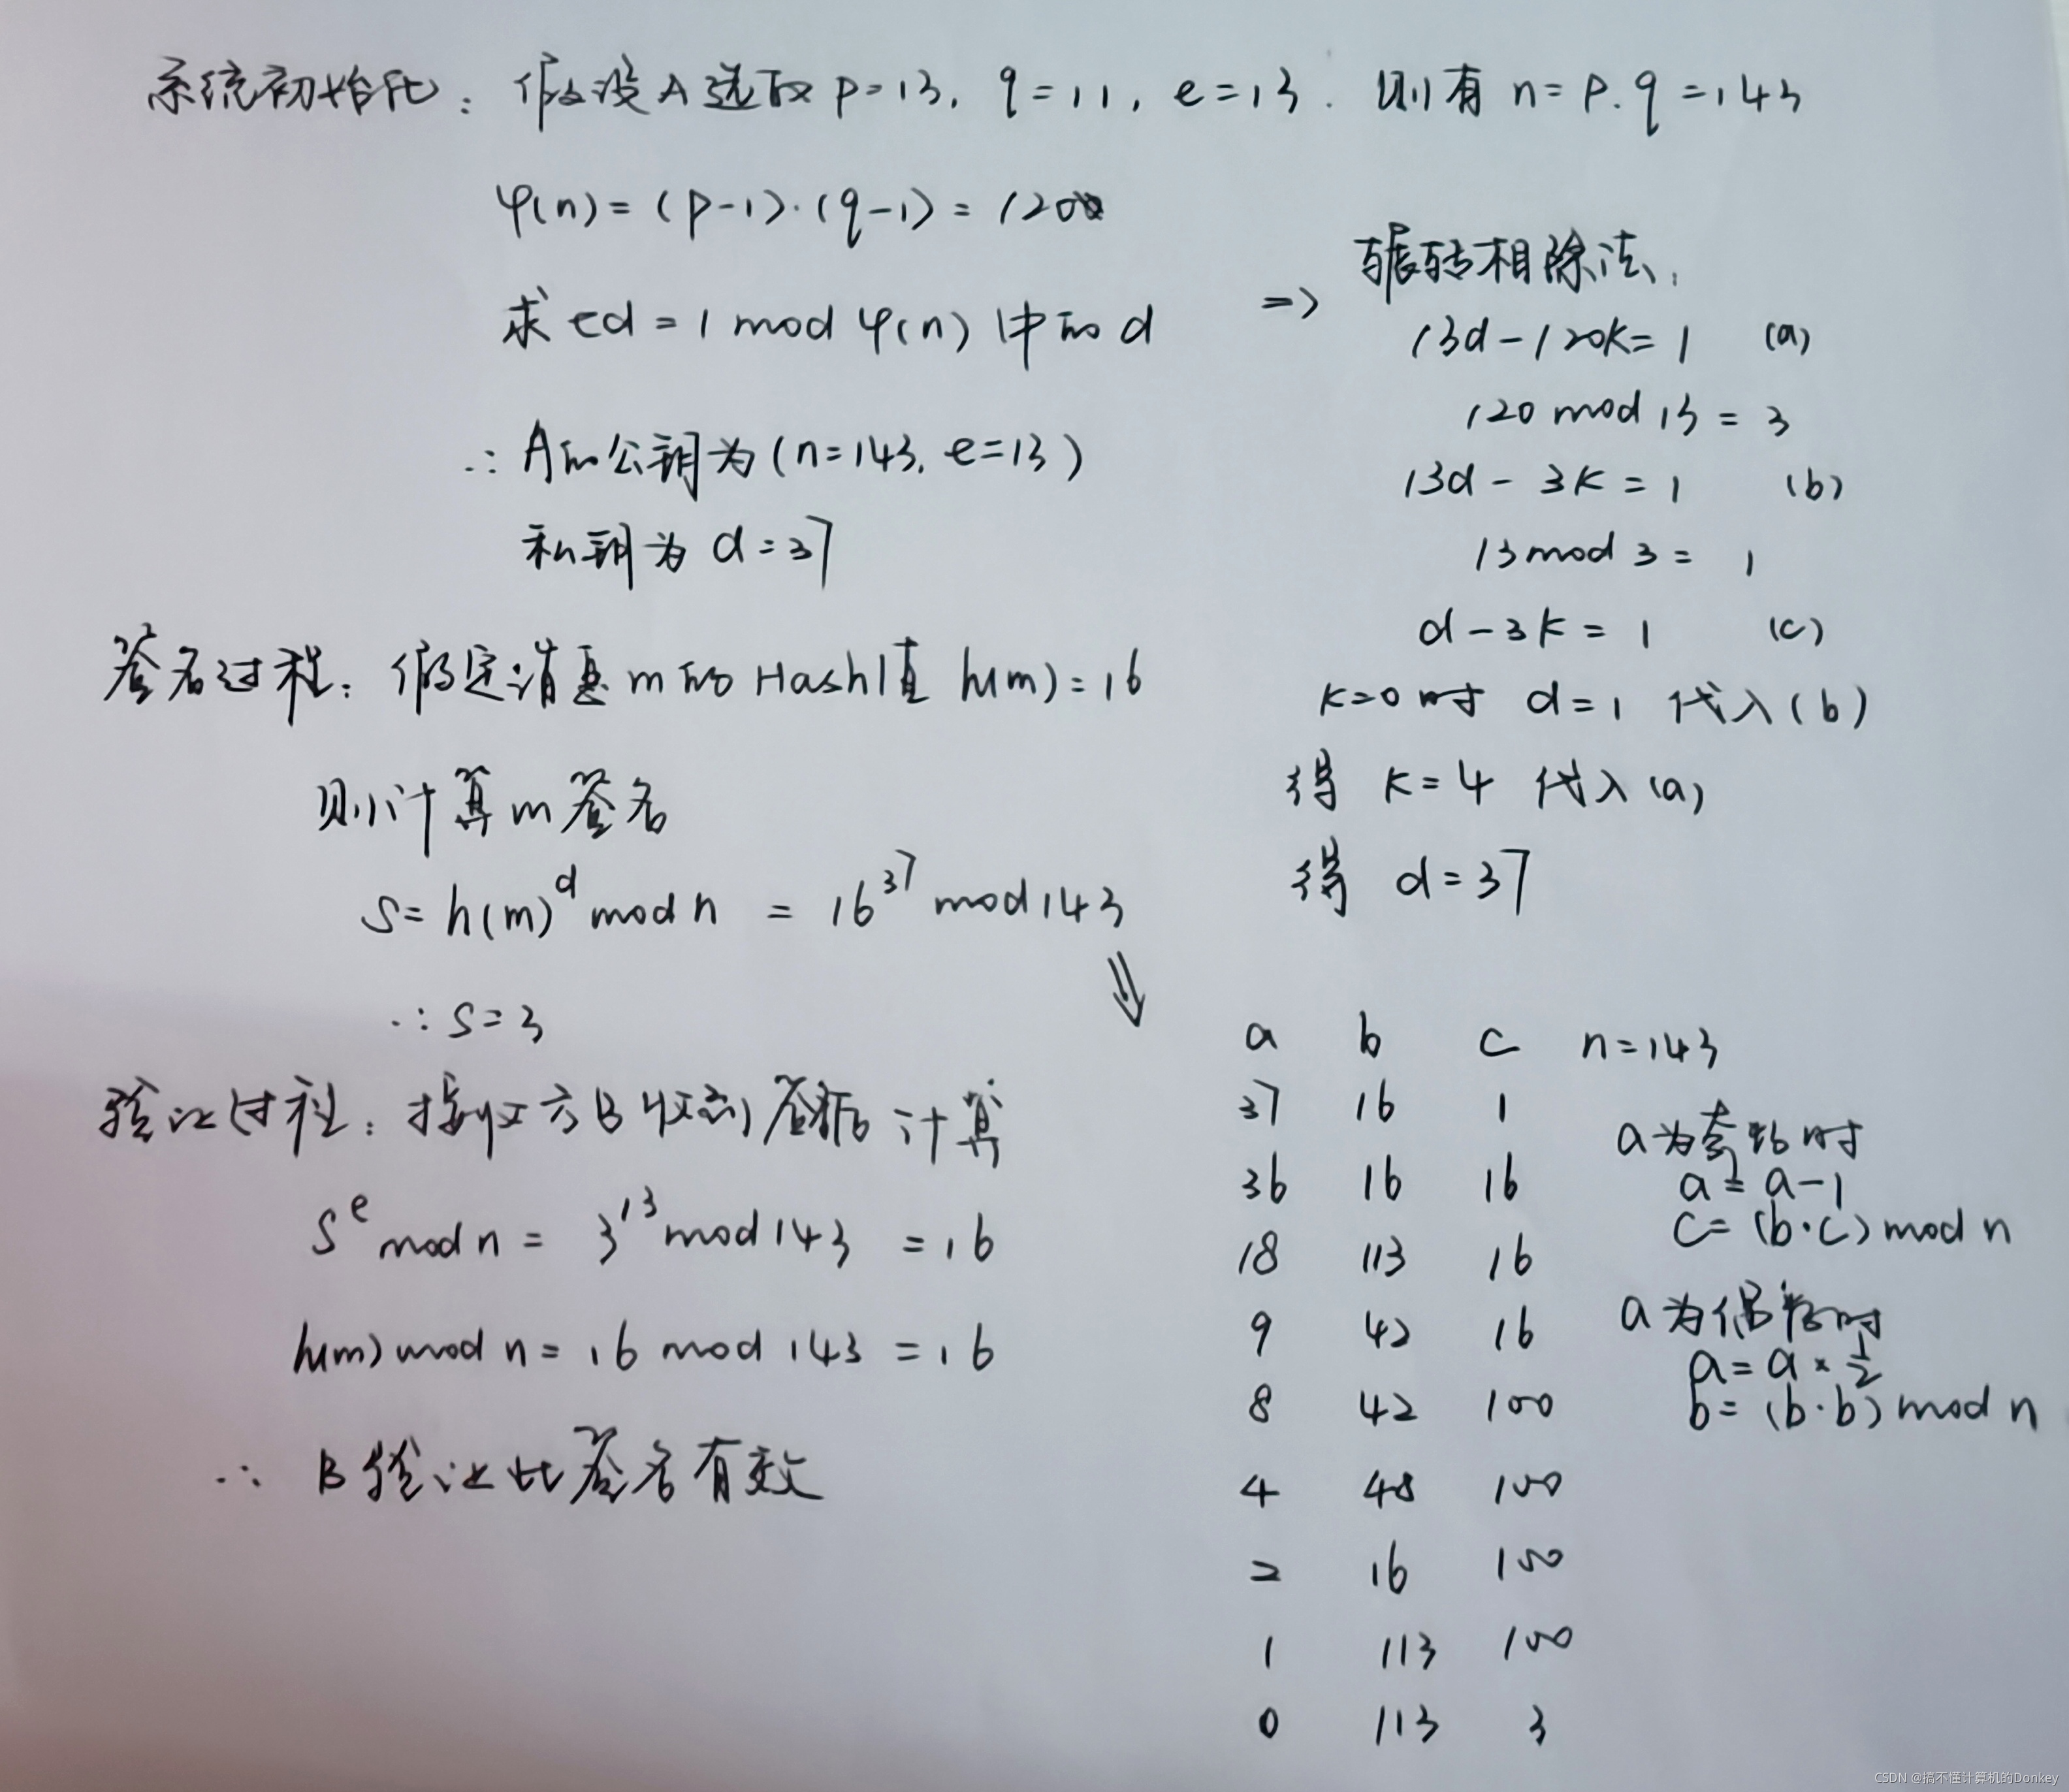 系统初始化：假设A选取 p=13, q=11, e=13. 则有 n=p.q=143
φ(n)=(p-1)·(q-1)=120
求 ed=1 mod φ(n) 中的 d
∴ A的公钥为(n=143, e=13)
私钥为 d=37
=> 辗转相除法：
13d-120k=1 (a)
120 mod 13 = 3
13d-3k=1 (b)
13 mod 3 = 1
d-3k=1 (c)
k=0时 d=1 代入(b)
得 k=4 代入(a)
得 d=37
签名过程：假定消息m的Hash值 h(m)=16
则计算m签名
S=h(m)^d mod n = 16^37 mod 143
∴ S=3
a b c n=143
37 16 1
36 16 16
18 113 16
9 42 16
8 42 100
4 48 100
2 16 100
1 113 100
0 113 3
a为奇数时
a=a-1
c=(b·c) mod n
a为偶数时
a=a×1/2
b=(b·b) mod n
验证过程：接收方B收到签名后计算
S^e mod n = 3^13 mod 143 = 16
h(m) mod n = 16 mod 143 = 16
∴ B验证此签名有效
CSDN @搞不懂计算机的Donkey